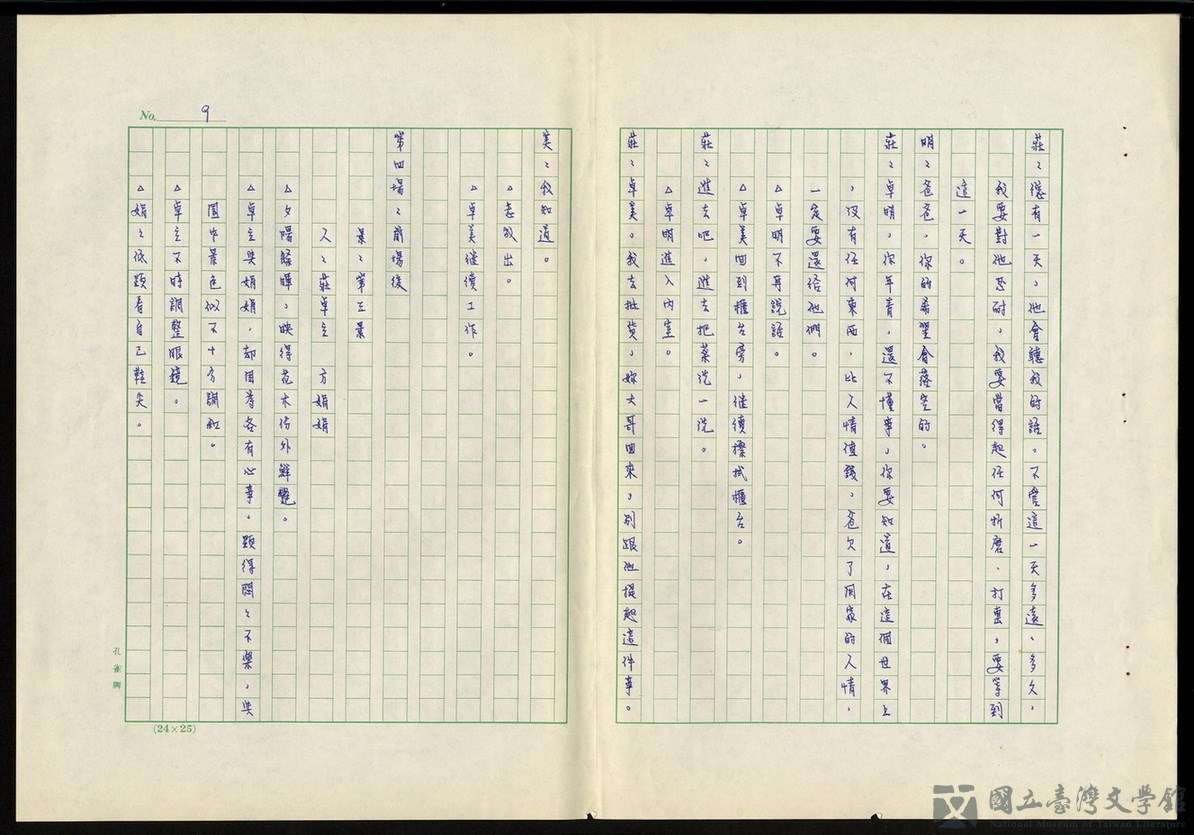 莊：總有一天，他會聽我的話。不管這一天多遠、多久，
我要對他忍耐，我要當得起任何折磨．打擊，要等到
這一天。
明：爸爸，你的希望會落空的。
莊：卓明，你年青，還不懂事，你要知道，在這個世界上
，沒有任何東西，比人情值錢，爸欠了周家的人情，
一定要還給他們。
△卓明不再說話。
△卓美回到櫃台旁，繼續擦拭櫃台。
莊：進去吧，進去把菜洗一洗。
△卓明進入內室。
莊：卓美。我去批貨，妳大哥回來，別跟他提起這件事。
美：我知道。
△志毅出。
△卓美继續工作。
第四場：前場後
景：第三景
人：莊卓立　方娟娟
△夕陽餘暉，映得花木份外鮮艷。
△卓立與娟娟，却因着各有心事。顯得悶悶不樂，與
園中景色似不十分調和。
△卓立不時調整眼鏡。
△娟：低頭看自己鞋尖。
No. 9
(24×25)
孔雀牌
國立臺灣文學館
National Museum of Taiwan Literature